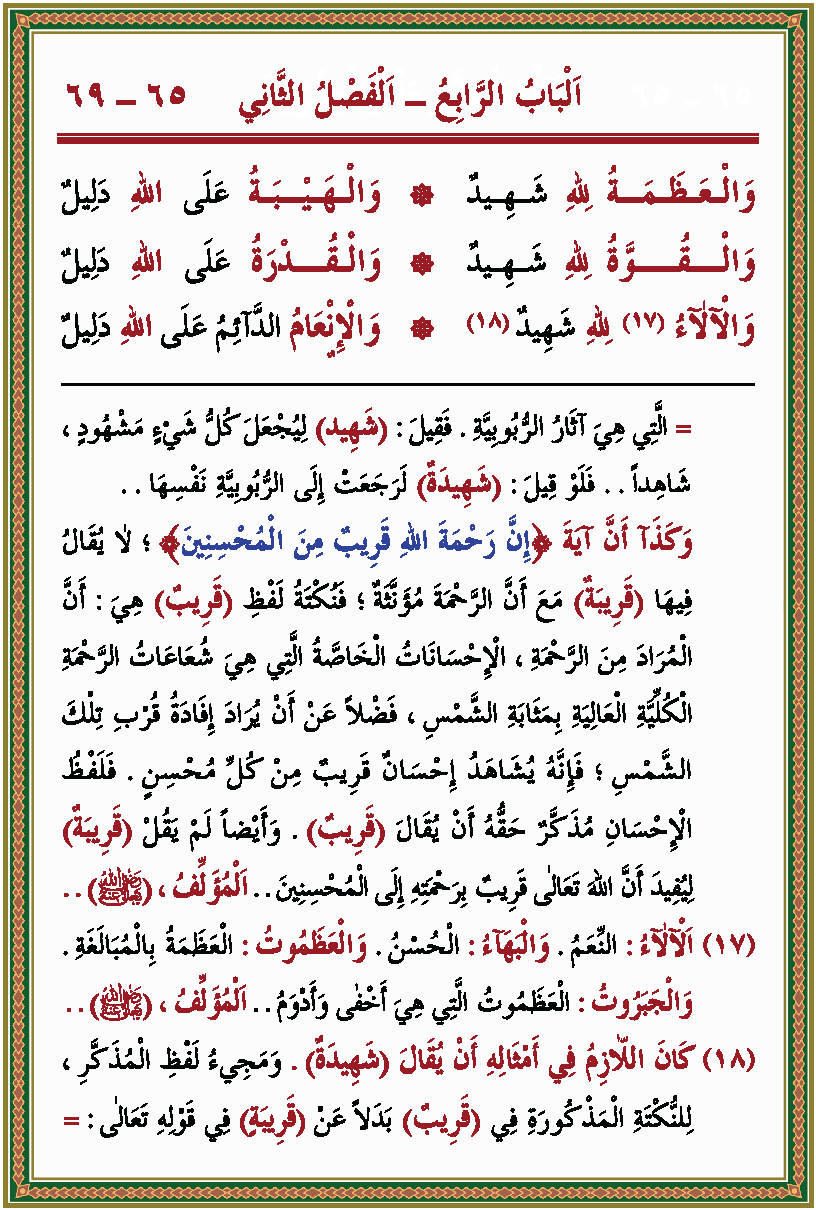 اَلْبَابُ الرَّابِعُ ــ اَلْفَصْلُ الثَّانِي ٦٥ ــ ٦٩
وَالْـعَـظَـمَـــةُ لِلّٰهِ شَـــهِـــيدٌ ۞ وَالْـهَـيْـــبَـةُ عَلَى اللّٰهِ دَلِيلٌ
وَالْـــقُـــــوَّةُ لِلّٰهِ شَـــهِـــيدٌ ۞ وَالْـقُـــدْرَةُ عَلَى اللّٰهِ دَلِيلٌ
وَالْآلَآءُ (١٧) لِلّٰهِ شَهِيدٌ (١٨) ۞ وَالْإِنْعَامُ الدَّآئِمُ عَلَى اللّٰهِ دَلِيلٌ
= الَّتِي هِيَ آثَارُ الرُّبُوبِيَّةِ . فَقِيلَ : (شَهِيد) لِيُجْعَلَ كُلُّ شَيْءٍ مَشْهُودٍ ،
شَاهِداً . . فَلَوْ قِيلَ : (شَهِيدَةٌ) لَرَجَعَتْ إِلَى الرُّبُوبِيَّةِ نَفْسِهَا . .
وَكَذَآ أَنَّ آيَةَ ﴿إِنَّ رَحْمَةَ اللّٰهِ قَرِيبٌ مِنَ الْمُحْسِنِينَ﴾ ؛ لَا يُقَالُ
فِيهَا (قَرِيبَةٌ) مَعَ أَنَّ الرَّحْمَةَ مُؤَنَّثَةٌ ؛ فَنُكْتَةُ لَفْظِ (قَرِيبٌ) هِيَ : أَنَّ
الْمُرَادَ مِنَ الرَّحْمَةِ ، الْإِحْسَانَاتُ الْخَاصَّةُ الَّتِي هِيَ شُعَاعَاتُ الرَّحْمَةِ
الْكُلِّيَّةِ الْعَالِيَةِ بِمَثَابَةِ الشَّمْسِ ، فَضْلاً عَنْ أَنْ يُرَادَ إِفَادَةُ قُرْبِ تِلْكَ
الشَّمْسِ ؛ فَإِنَّهُ يُشَاهَدُ إِحْسَانٌ قَرِيبٌ مِنْ كُلِّ مُحْسِنٍ . فَلَفْظُ
الْإِحْسَانِ مُذَكَّرٌ حَقُّهُ أَنْ يُقَالَ (قَرِيبٌ) . وَأَيْضاً لَمْ يَقُلْ (قَرِيبَةٌ)
لِيُفِيدَ أَنَّ اللّٰهَ تَعَالٰى قَرِيبٌ بِرَحْمَتِهِ إِلَى الْمُحْسِنِينَ . . اَلْمُؤَلِّفُ ، (ﷺ) . .
(١٧) اَلْآلَآءُ : النِّعَمُ . وَالْبَهَآءُ : الْحُسْنُ . وَالْعَظَمُوتُ : الْعَظَمَةُ بِالْمُبَالَغَةِ .
وَالْجَبَرُوتُ : الْعَظَمُوتُ الَّتِي هِيَ أَخْفٰى وَأَدْوَمُ . . اَلْمُؤَلِّفُ ، (ﷺ) . .
(١٨) كَانَ اللَّازِمُ فِي أَمْثَالِهِ أَنْ يُقَالَ (شَهِيدَةٌ) . وَمَجِيءُ لَفْظِ الْمُذَكَّرِ ،
لِلنُّكْتَةِ الْمَذْكُورَةِ فِي (قَرِيبٌ) بَدَلاً عَنْ (قَرِيبَةٍ) فِي قَوْلِهِ تَعَالٰى : =